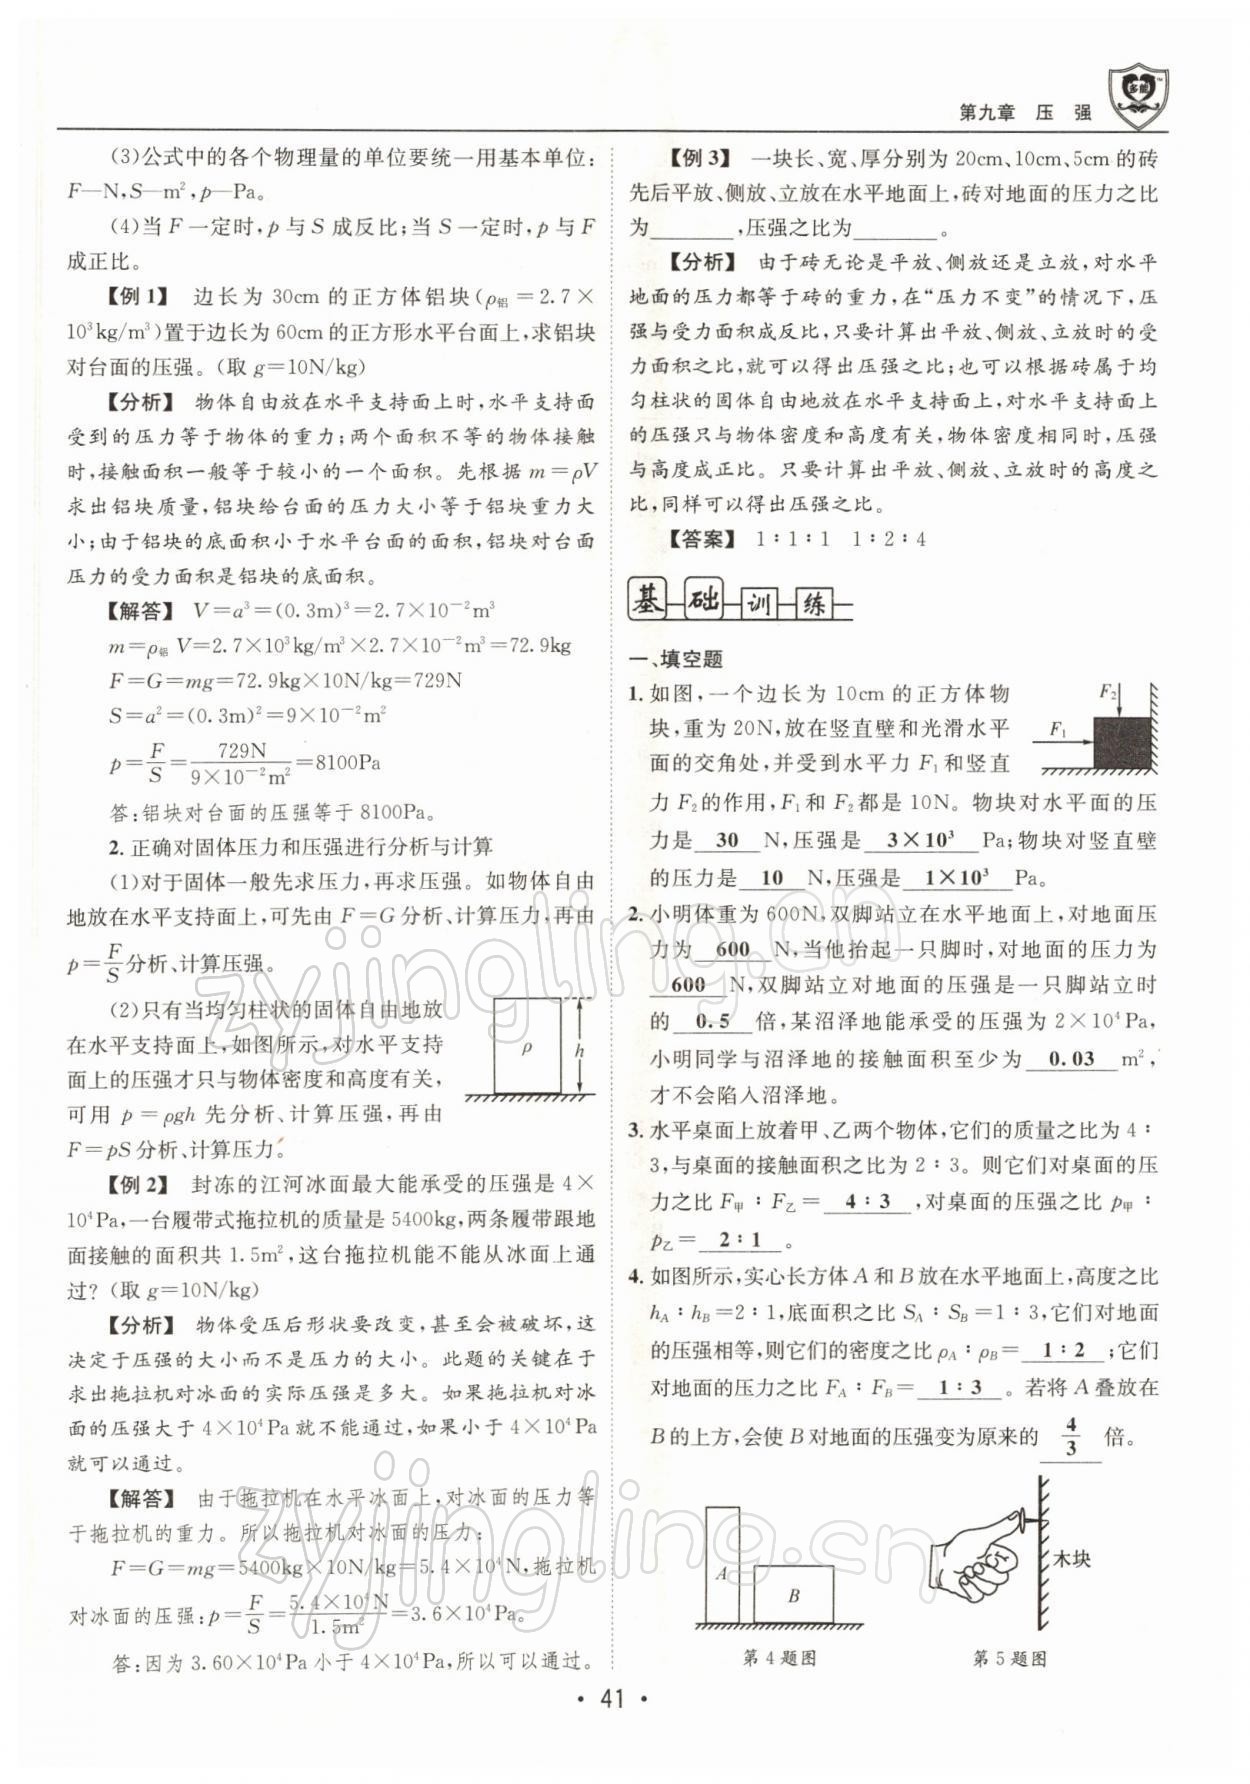 第九章 压 强
多能
TM
(3)公式中的各个物理量的单位要统一用基本单位:
F—N,S—m²,p—Pa。
(4)当 F 一定时,p 与 S 成反比;当 S 一定时,p 与 F
成正比。
【例 1】 边长为 30cm 的正方体铝块(ρ铝=2.7×
10³kg/m³)置于边长为 60cm 的正方形水平台面上,求铝块
对台面的压强。(取 g=10N/kg)
【分析】 物体自由放在水平支持面上时,水平支持面
受到的压力等于物体的重力;两个面积不等的物体接触
时,接触面积一般等于较小的一个面积。先根据 m=ρV
求出铝块质量,铝块给台面的压力大小等于铝块重力大
小;由于铝块的底面积小于水平台面的面积,铝块对台面
压力的受力面积是铝块的底面积。
【解答】 V=a³=(0.3m)³=2.7×10⁻²m³
m=ρ铝 V=2.7×10³kg/m³×2.7×10⁻²m³=72.9kg
F=G=mg=72.9kg×10N/kg=729N
S=a²=(0.3m)²=9×10⁻²m²
p=F/S=729N/9×10⁻²m²=8100Pa
答:铝块对台面的压强等于 8100Pa。
2. 正确对固体压力和压强进行分析与计算
(1)对于固体一般先求压力,再求压强。如物体自由
地放在水平支持面上,可先由 F=G 分析、计算压力,再由
p=F/S分析、计算压强。
(2)只有当均匀柱状的固体自由地放
在水平支持面上,如图所示,对水平支持
面上的压强才只与物体密度和高度有关,
可用 p=ρgh 先分析、计算压强,再由
F=pS 分析、计算压力。
ρ
h
【例 2】 封冻的江河冰面最大能承受的压强是 4×
10⁴Pa,一台履带式拖拉机的质量是 5400kg,两条履带跟地
面接触的面积共 1.5m²,这台拖拉机能不能从冰面上通
过?(取 g=10N/kg)
【分析】 物体受压后形状要改变,甚至会被破坏,这
决定于压强的大小而不是压力的大小。此题的关键在于
求出拖拉机对冰面的实际压强是多大。如果拖拉机对冰
面的压强大于 4×10⁴Pa 就不能通过,如果小于 4×10⁴Pa
就可以通过。
【解答】 由于拖拉机在水平冰面上,对冰面的压力等
于拖拉机的重力。所以拖拉机对冰面的压力:
F=G=mg=5400kg×10N/kg=5.4×10⁴N,拖拉机
对冰面的压强:p=F/S=5.4×10⁴N/1.5m²=3.6×10⁴Pa
答:因为 3.60×10⁴Pa 小于 4×10⁴Pa,所以可以通过。
【例 3】 一块长、宽、厚分别为 20cm,10cm,5cm 的砖
先后平放、侧放、立放在水平地面上,砖对地面的压力之比
为________,压强之比为________。
【分析】 由于砖无论是平放、侧放还是立放,对水平
地面的压力都等于砖的重力,在“压力不变”的情况下,压
强与受力面积成反比,只要计算出平放、侧放、立放时的受
力面积之比,就可以得出压强之比;也可以根据砖属于均
匀柱状的固体自由地放在水平地面上,对水平支持面上
的压强只与物体密度和高度有关,物体密度相同时,压强
与高度成正比。只要计算出平放、侧放、立放时的高度之
比,同样可以得出压强之比。
【答案】 1∶1∶1 1∶2∶4
基础训练
一、填空题
1. 如图,一个边长为 10cm 的正方体物
块,重为 20N,放在竖直壁和光滑水平
面的交角处,并受到水平力 F₁和竖直
力 F₂的作用,F₁和 F₂都是 10N。物块对水平面的压
力是 30 N,压强是 3×10³ Pa;物块对竖直壁
的压力是 10 N,压强是 1×10³ Pa。
F₂
F₁
2. 小明体重为 600N,双脚站立在水平地面上,对地面压
力为 600 N,当他抬起一只脚时,对地面的压力为
600 N,双脚站立对地面的压强是一只脚站立时
的 0.5 倍,某沼泽地能承受的压强为 2×10⁴Pa,
小明同学与沼泽地的接触面积至少为 0.03 m²,
才不会陷入沼泽地。
3. 水平桌面上放着甲、乙两个物体,它们的质量之比为 4∶
3,与桌面的接触面积之比为 2∶3。则它们对桌面的压
力之比 F甲∶F乙= 4∶3 ,对桌面的压强之比 p甲∶
p乙= 2∶1 。
4. 如图所示,实心长方体 A 和 B 放在水平地面上,高度之比
hA∶hB=2∶1,底面积之比 SA∶SB=1∶3,它们对地面
的压强相等,则它们的密度之比 ρA∶ρB= 1∶2 ;它们
对地面的压力之比 FA∶FB= 1∶3 。若将 A 叠放在
B 的上方,会使 B 对地面的压强变为原来的 4/3 倍。
A
B
木块
第 4 题图
第 5 题图
· 41 ·
zyjingling.cn
zyjingling.cn